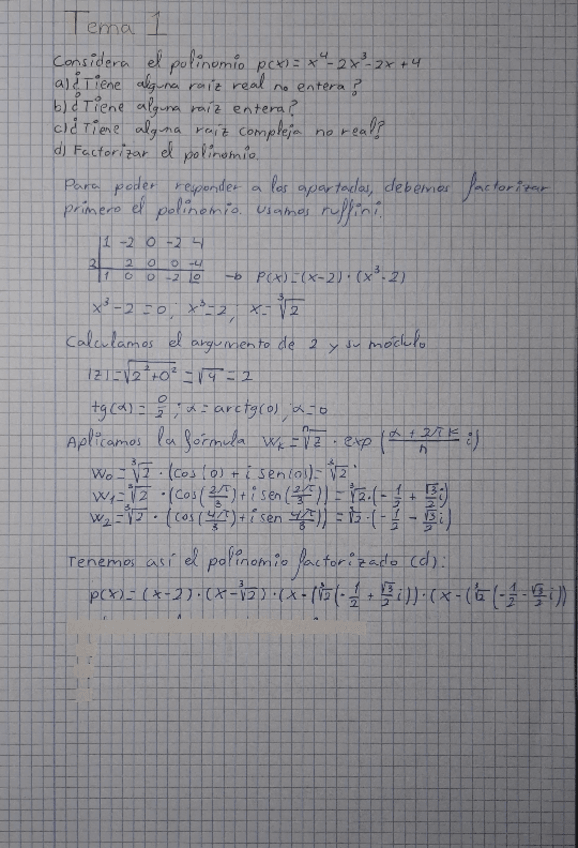 Tema 1
Considera el polinomio p(x) = x⁴-2x³-2x+4
a) ¿Tiene alguna raíz real no entera?
b) ¿Tiene alguna raíz entera?
c) ¿Tiene alguna raíz compleja no real?
d) Factorizar el polinomio.
Para poder responder a los apartados, debemos factorizar
primero el polinomio. usamos ruffini.
1 -2 0 -2 4
2 2 0 0 -4 → P(x)=(x-2)·(x³-2)
1 0 0 -2 0
x³-2=0; x³=2; x=∛2
Calculamos el argumento de 2 y su módulo
|z|=√(2²+0²)=√4=2
tg(α)=0/2; α=arctg(0), α=0
Aplicamos la fórmula: Wₖ=ⁿ√2 · exp((α+2πk)/n i)
W₀=∛2·(cos(0)+i sen(0))=∛2
W₁=∛2·(cos(2π/3)+i sen(2π/3))=∛2·(-1/2+√3/2 i)
W₂=∛2·(cos(4π/3)+i sen 4π/3))=∛2·(-1/2-√3/2 i)
Tenemos así el polinomio factorizado (d):
p(x)=(x-2)·(x-∛2)·(x-(∛2(-1/2+√3/2 i))·(x-(∛2(-1/2-√3/2 i))